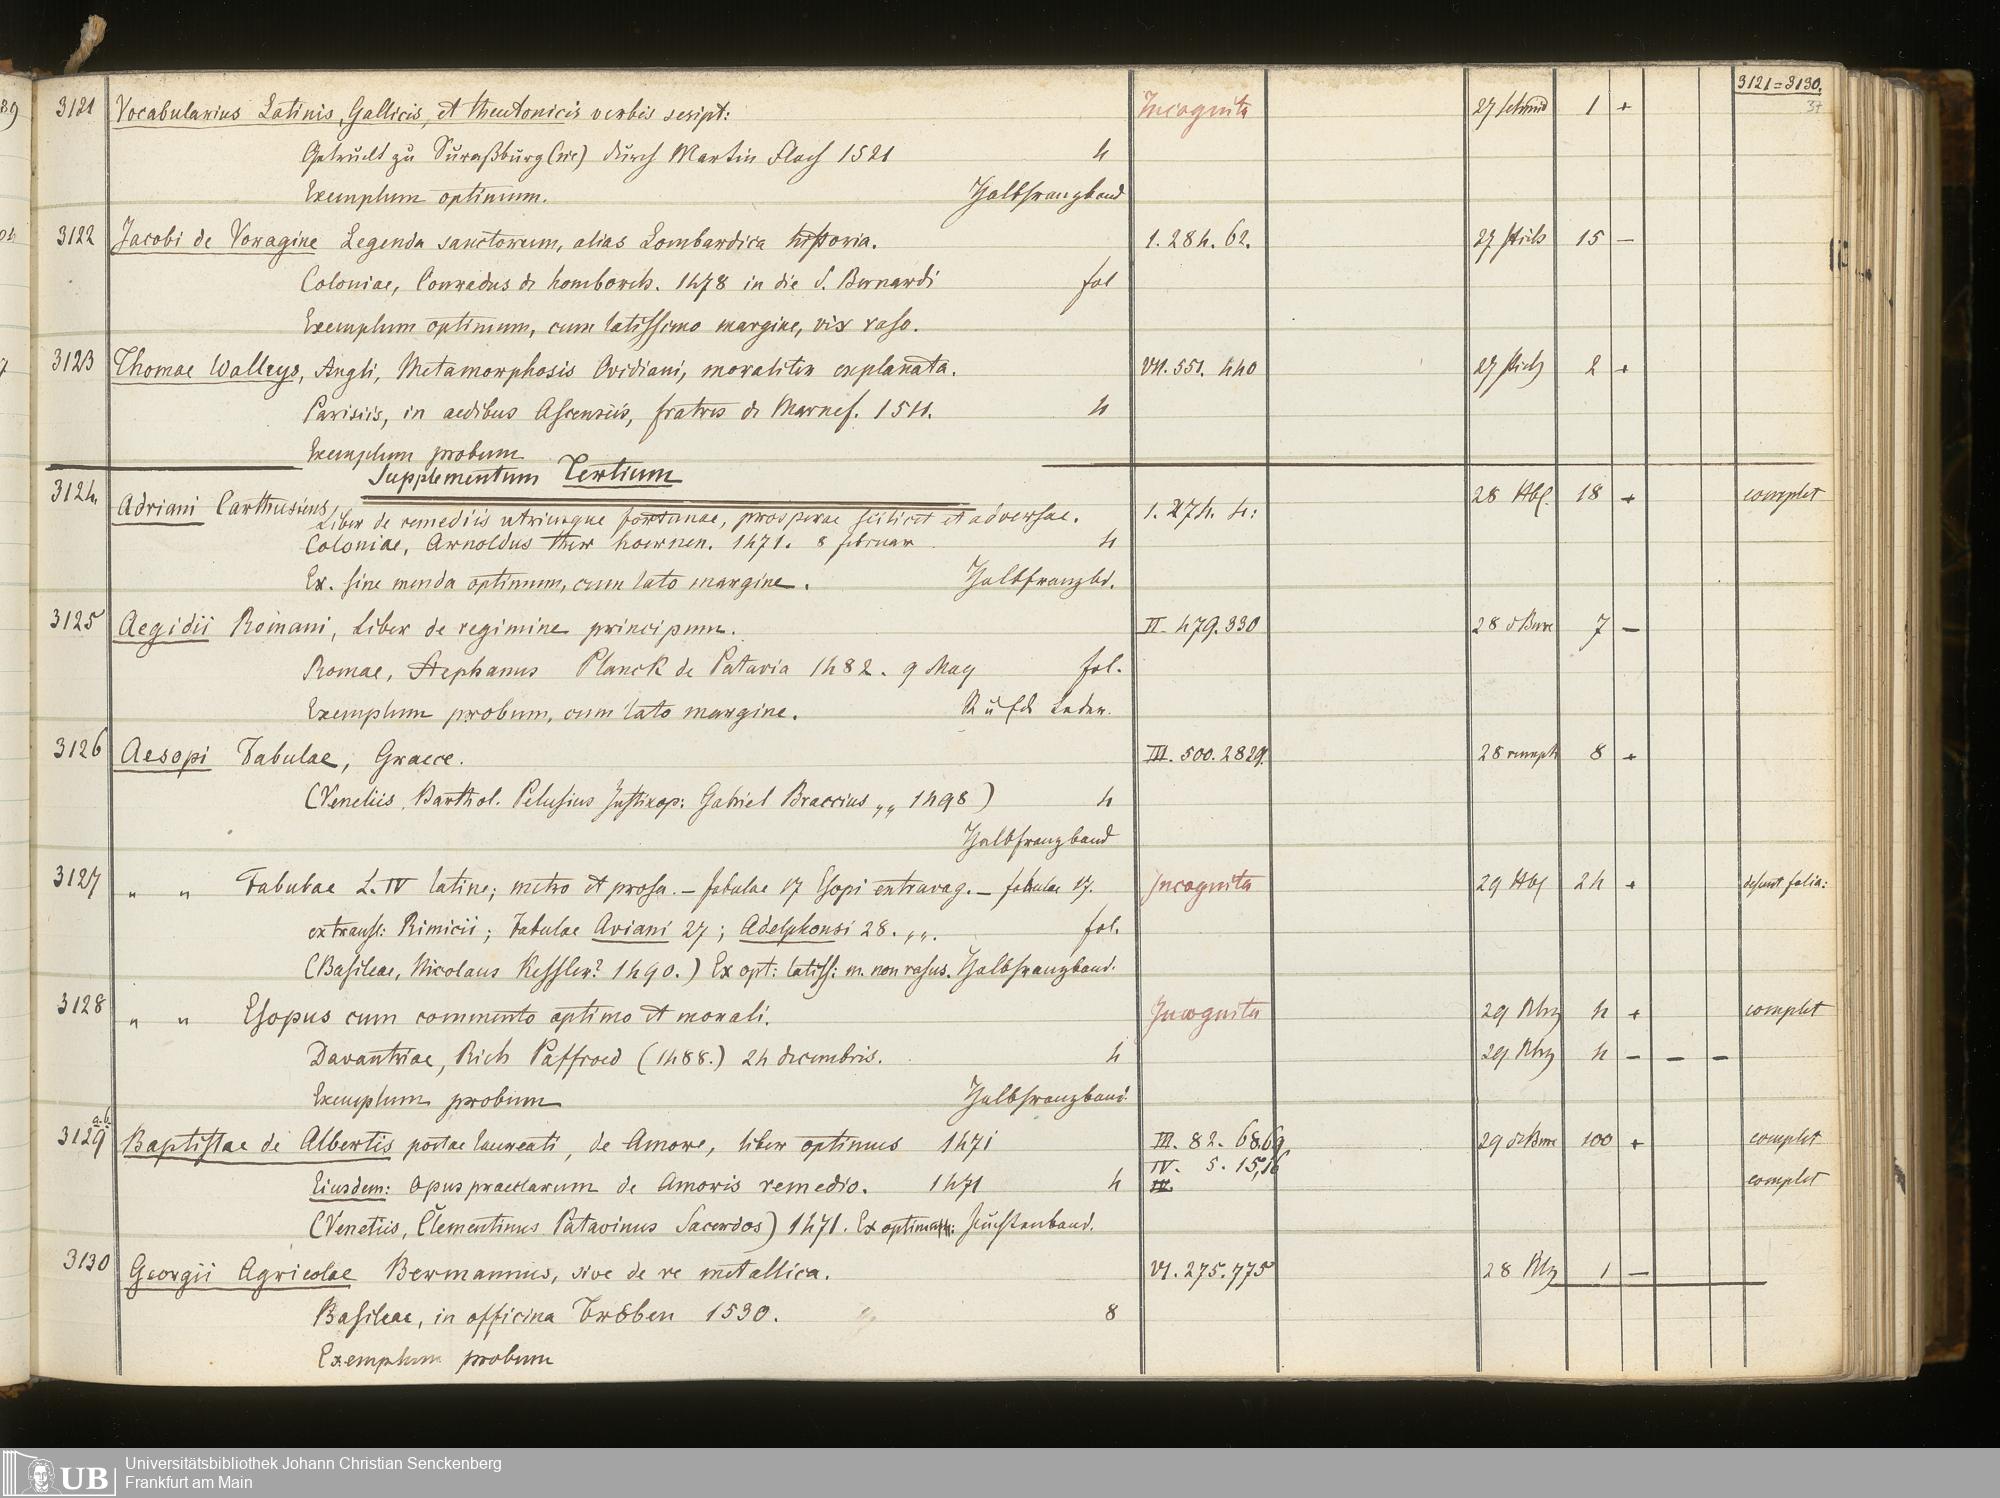 3121=3130.
3121 Vocabularius Latinis, Gallicis, et theutonicis verbis script: Incognita 27 1 +
Getruckt zu Suraßburg (sic) durch Martin Flach 1521 4
Exemplum optimum. Halbfranzband
3122 Jacobi de Voragine Legenda sanctorum, alias Lombardica historia. 1. 284. 62. 27 15 –
Coloniae, Conradus de homborch. 1478 in die S. Bernardi fol
Exemplum optimum, cum latissimo margine, vix raso.
3123 Thomae Walleys, Angli, Metamorphosis Ovidiani, moraliter explanata. VII. 551. 440 27 2 +
Parisiis, in aedibus Ascensiis, fratres de Marnef. 1511. 4
Exemplum probum
Supplementum Tertium
3124. Adriani Carthusiens 1. 274. 4: 28 18 + complet
Liber de remediis utriusque fortunae, prosperae scilicet et adversae.
Coloniae, Arnoldus ther hoernen. 1471. 8 februar 4
Ex. sine menda optimum, cum lato margine. Halbfranzbd.
3125 Aegidii Romani, Liber de regimine principum. II. 479. 330 28 7 –
Romae, Stephanus Planck de Patavia 1482. 9 May fol.
Exemplum probum, cum lato margine. Leder.
3126 Aesopi Fabulae, Graece. III. 500. 2829. 28 8 +
(Venetiis, Barthol. Pelusius Justinop: Gabriel Braccius „„ 1498) 4
Halbfranzband
3127 „ „ Fabulae L. IV latine; metro et prosa. – fabulae 17 Esopi extravag. – fabulae 17. Incognita 29 24 + desunt folia:
ex transl: Rimicii; Fabulae Aviani 27; Adelphonsi 28. „„. fol.
(Basileae, Nicolaus Kessler? 1490.) Ex opt: latiss: m. non rasus. Halbfranzband.
3128 „ „ Esopus cum commento optimo et morali. Incognita 29 4 + complet
Davantriae, Rich Paffroed (1488.) 24 decembris. 4 29 4 – – –
Exemplum probum Halbfranzband.
3129 a.b. Baptistae de Albertis poetae laureati, de Amore, liber optimus 1471 III. 82. 68.69 29 100 + complet
IV. 5. 15,16
Eiusdem: opus praeclarum de Amoris remedio. 1471 4 complet
(Venetiis, Clementinus Patavinus Sacerdos) 1471. Juchtenband.
3130 Georgii Agricolae Bermannus, sive de re metallica. VI. 275. 775 28 1 –
Basileae, in officina Froben 1530. 8
Exemplum probum
UB Universitätsbibliothek Johann Christian Senckenberg
Frankfurt am Main